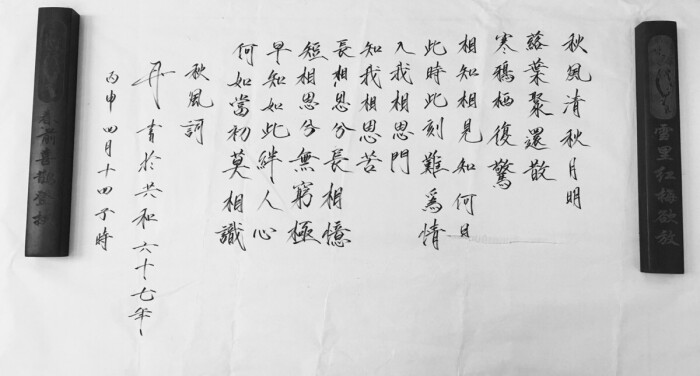 雲里紅梅欲放
秋風清秋月明
落葉聚還散
寒鴉栖復驚
相知相見知何日
此時此刻難爲情
入我相思門
知我相思苦
長相思兮長相憶
短相思兮無窮極
早知如此絆人心
何如當初莫相識
秋風詞
書於共和六十七年
丙申四月十四子時
春前喜鵲登枝